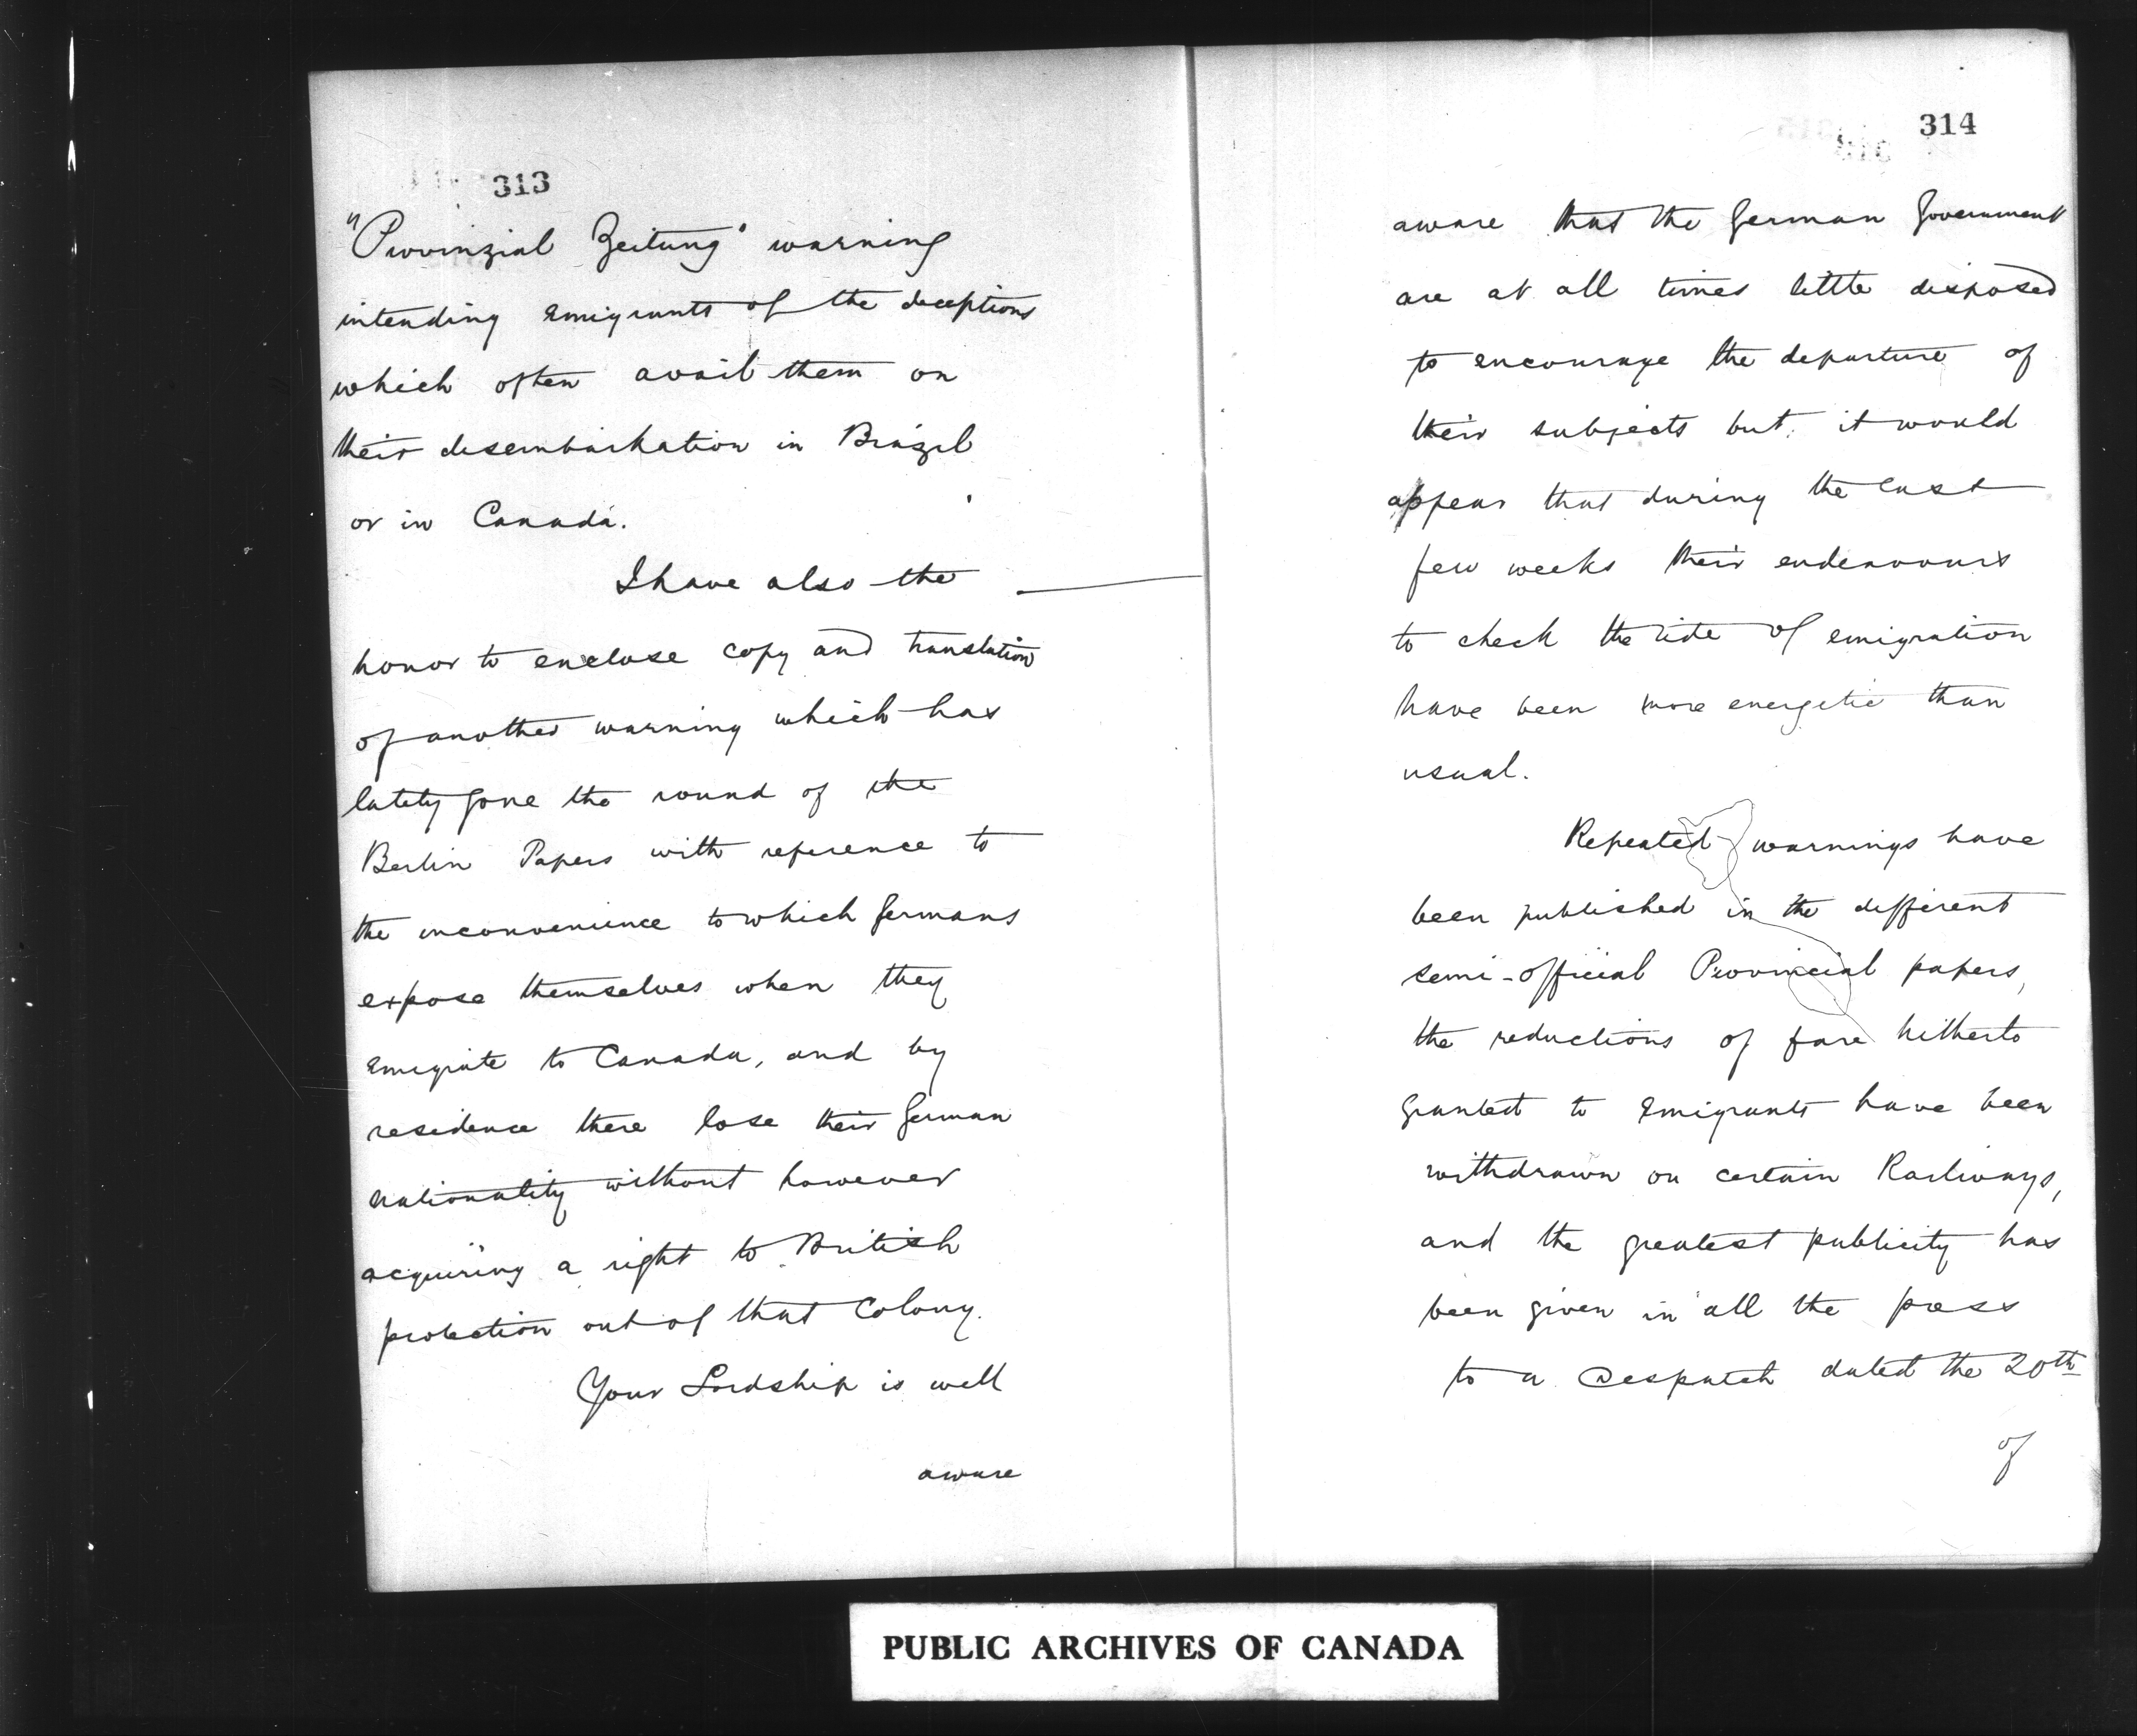 313
"Provinzial Zeitung" warning
intending Emigrants of the deceptions
which often avail them on
their disembarkation in Brazil
or in Canada.
I have also the
honor to enclose copy and translation
of another warning which has
lately gone the round of the
Berlin Papers with reference to
the inconvenience to which Germans
expose themselves when they
Emigrate to Canada, and by
residence there lose their German
nationality without however
acquiring a right to British
protection out of that Colony.
Your Lordship is well
aware
314
aware that the German Government
are at all times little disposed
to encourage the departure of
their subjects but, it would
appear that during the last
few weeks their endeavours
to check the tide of emigration
have been more energetic than
usual.
Repeated warnings have
been published in the different
semi-official Provincial papers,
the reductions of fare hitherto
granted to Emigrants have been
withdrawn on certain Railways,
and the greatest publicity has
been given in all the press
to a Despatch dated the 20th
of
PUBLIC ARCHIVES OF CANADA